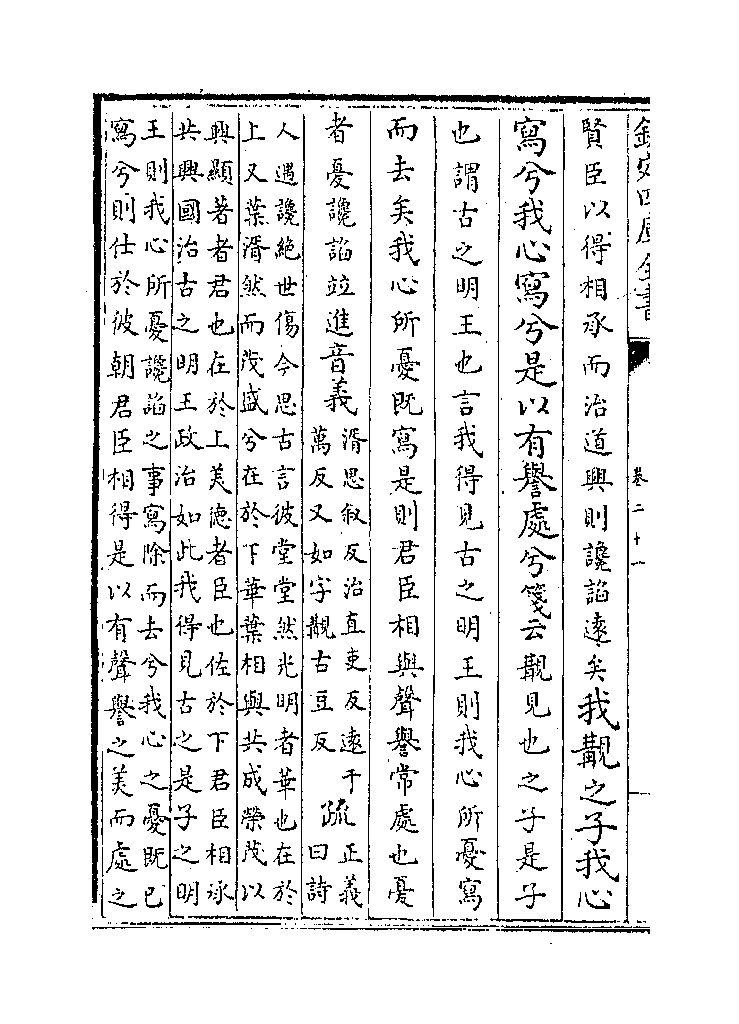 欽定四庫全書
卷二十一
賢臣以得相承而治道興則讒諂遠矣我覯之子我心
寫兮我心寫兮是以有譽處兮箋云覯見也之子是子
也謂古之明王也言我得見古之明王則我心所憂寫
而去矣我心所憂既寫是則君臣相與聲譽常處也憂
者憂讒諂竝進音義
湑思叙反治直吏反遠于
萬反又如字覯古豆反
疏
正義
曰詩
人遇讒絶世傷今思古言彼堂堂然光明者華也在於
上又葉湑然而茂盛兮在於下華葉相與共成榮茂以
興顯著者君也在於上美德者臣也佐於下君臣相承
共興國治古之明王政治如此我得見古之是子之明
王則我心所憂讒諂之事寫除而去兮我心之憂既已
寫兮則仕於彼朝君臣相得是以有聲譽之美而處之